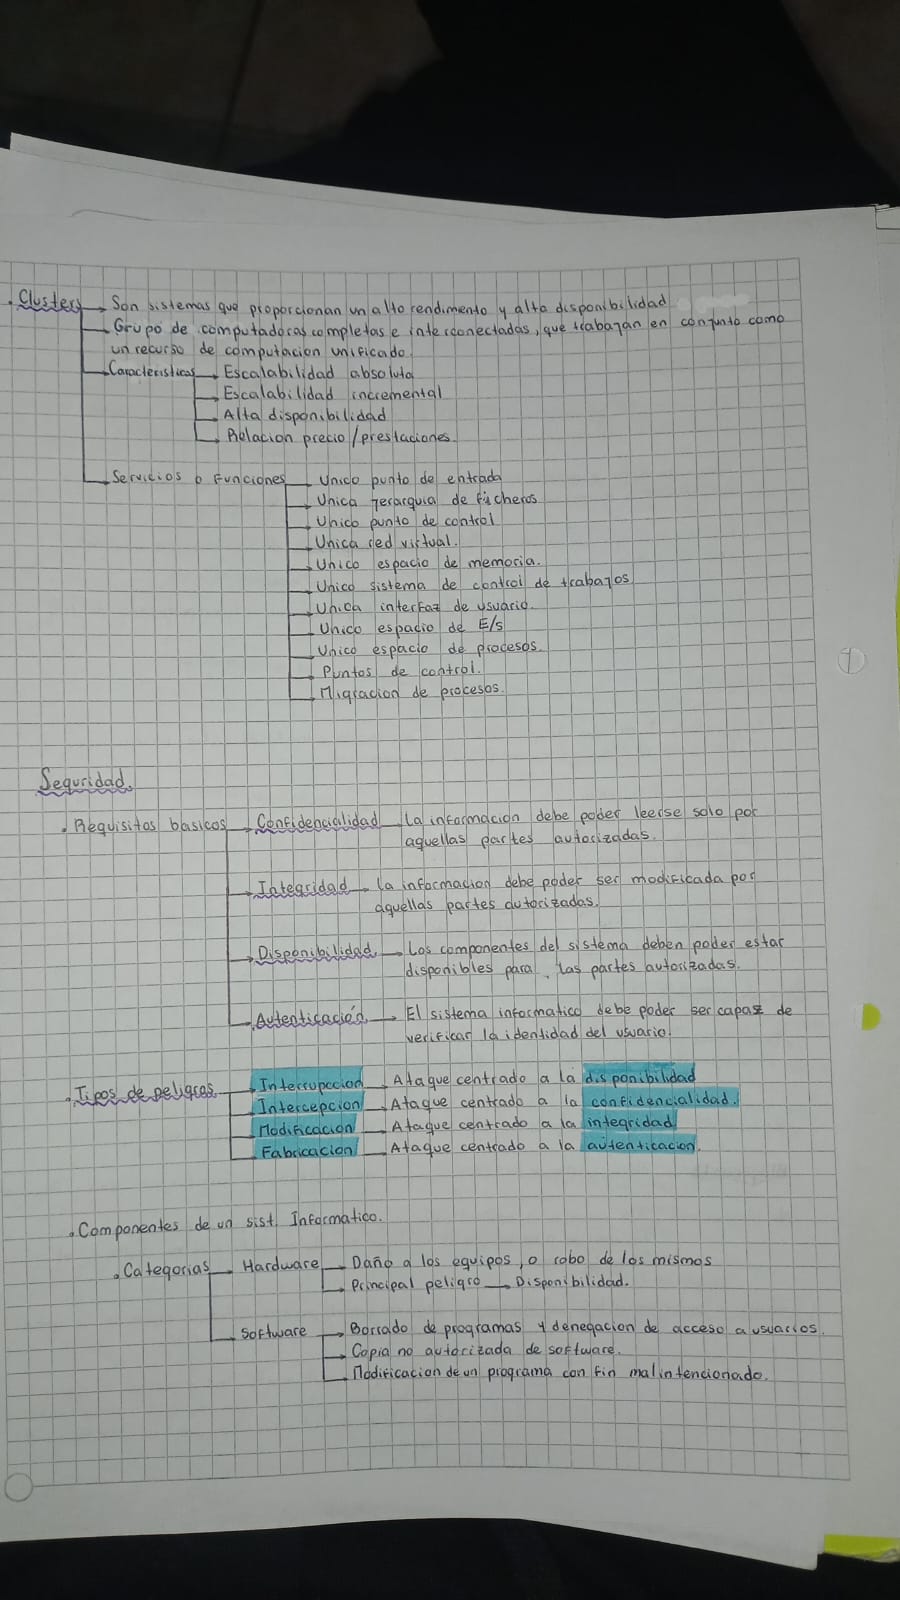 . Clusters → Son sistemas que proporcionan un alto rendimiento y alta disponibilidad
→ Grupo de computadoras completas e interconectadas, que trabajan en conjunto como
un recurso de computacion unificado.
→ Caracteristicas → Escalabilidad absoluta
→ Escalabilidad incremental
→ Alta disponibilidad
→ Relacion precio/prestaciones.
→ Servicios o Funciones → Unico punto de entrada
→ Unica jerarquia de ficheros
→ Unico punto de control
→ Unica red virtual.
→ Unico espacio de memoria.
→ Unico sistema de control de trabajos
→ Unica interfaz de usuario.
→ Unico espacio de E/s
→ Unico espacio de procesos.
→ Puntos de control.
→ Migracion de procesos.
1
Seguridad.
. Requisitos basicos → Confidencialidad → La informacion debe poder leerse solo por
aquellas partes autorizadas.
→ Integridad → La informacion debe poder ser modificada por
aquellas partes autorizadas.
→ Disponibilidad → Los componentes del sistema deben poder estar
disponibles para las partes autorizadas.
→ Autenticación → El sistema informatico debe poder ser capaz de
verificar la identidad del usuario.
. Tipos de peligros → Interrupccion → Ataque centrado a la disponibilidad
→ Intercepcion → Ataque centrado a la confidencialidad.
→ Modificacion → Ataque centrado a la integridad
→ Fabricacion → Ataque centrado a la autenticacion.
. Componentes de un sist. Informatico.
. Categorias → Hardware → Daño a los equipos, o robo de los mismos
→ Principal peligro → Disponibilidad.
→ Software → Borrado de programas y denegacion de acceso a usuarios.
→ Copia no autorizada de software.
→ Modificacion de un programa con fin malintencionado.